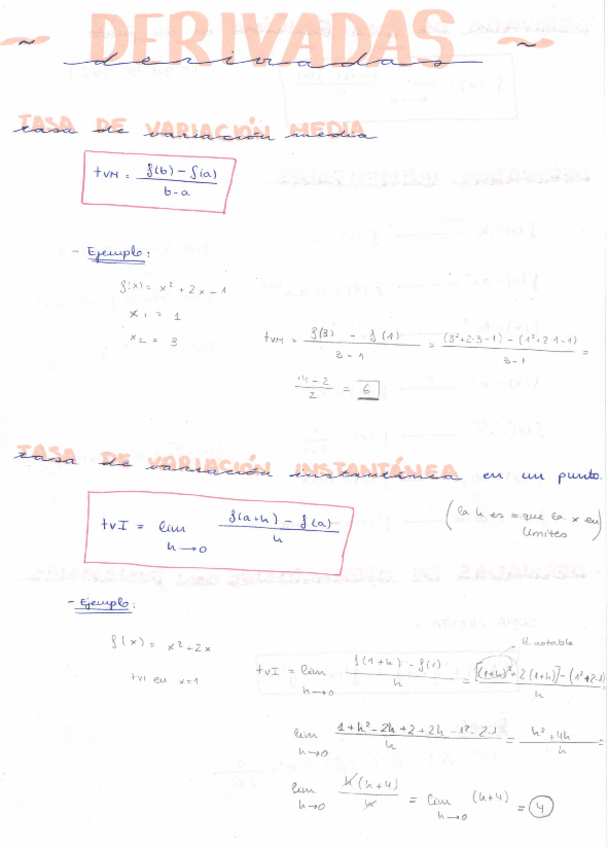 ~ DERIVADAS ~
derivadas
TASA DE VARIACIÓN MEDIA
tasa de variación media
tVM = f(b) - f(a) / b-a
- Ejemplo:
f(x) = x² + 2x - 1
x₁ = 1
x₂ = 3
tVM = f(3) - f(1) / 3-1 = (3²+2·3-1) - (1²+2·1-1) / 3-1 =
14-2 / 2 = 6
TASA DE VARIACIÓN INSTANTÁNEA en un punto.
tasa de variación instantánea
tVI = lim h→0 f(a+h) - f(a) / h
(la h es = que la x en límites)
- Ejemplo:
f(x) = x²+2x
tVI en x=1
id. notable
tVI = lim h→0 f(1+h) - f(1) / h = [(1+h)²+2(1+h)] - (1²+2·1) / h
lim h→0 1+h²-2h+2+2h-1²-2·1 / h = h²+4h / h =
lim h→0 h(h+4) / h = lim h→0 (h+4) = 4